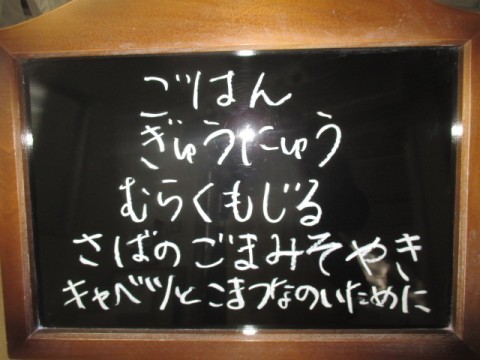 ごはん
ぎゅうにゅう
むらくもじる
さばのごまみそやき
キャベツとこまつなのいために